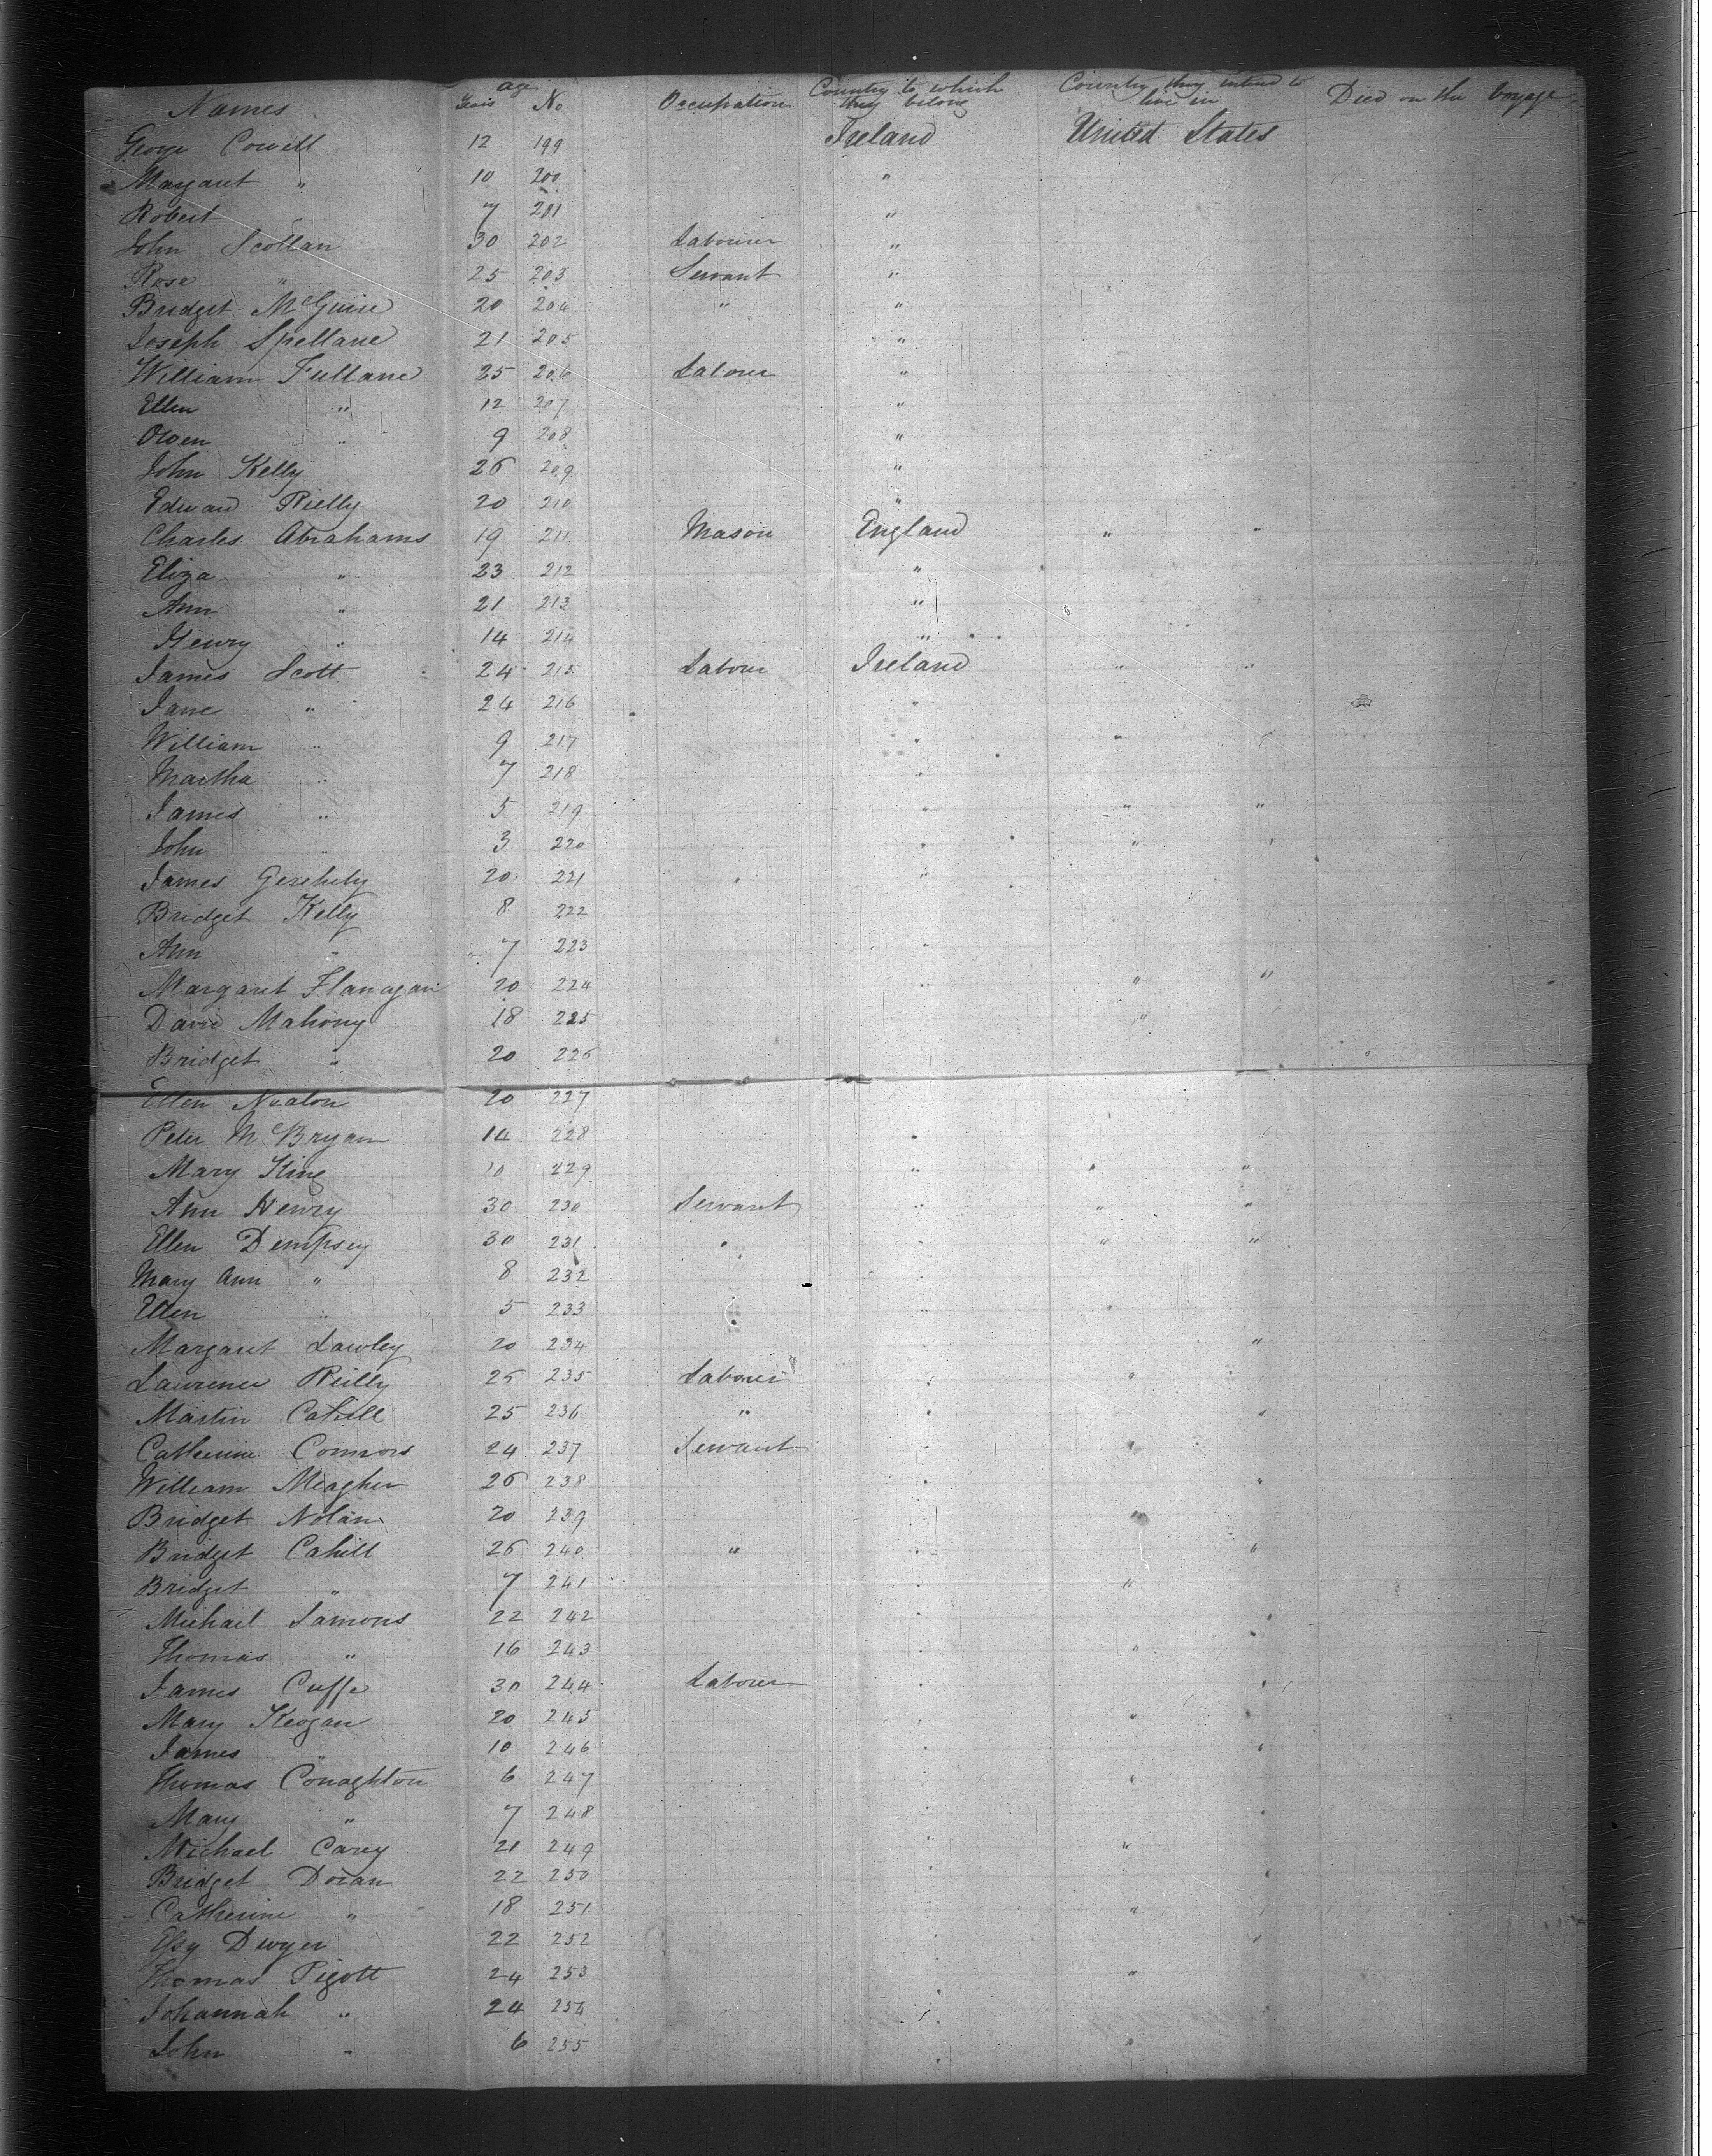 Names age Years No Occupation Country to which they belong Country they intend to live in Died on the Voyage
George Cowell 12 199 Ireland United States
Margaret " 10 200 "
Robert 7 201 "
John Scollan 30 202 Labourer "
Rose " 25 203 Servant "
Bridget McGuire 20 204 " "
Joseph Spellane 21 205 "
William Fullane 25 206 Labourer "
Ellen " 12 207 "
Owen " 9 208 "
John Kelly 26 209 "
Edward Rielly 20 210 "
Charles Abrahams 19 211 Mason England " "
Eliza " 23 212 "
Ann " 21 213 "
Henry " 14 214 "
James Scott 24 215 Labour Ireland " "
Jane " 24 216 "
William " 9 217 " "
Martha " 7 218 "
James " 5 219 " " "
John " 3 220 " " "
James Gerehely 20 221 " "
Bridget Kelly 8 222
Ann " 7 223 "
Margaret Flanagan 20 224 " " "
David Mahony 18 225 "
Bridget " 20 226
Ellen Nealon 20 227
Peter McBryan 14 228 "
Mary King 10 229 " " "
Ann Henry 30 230 Servant " " "
Ellen Dempsey 30 231 " " " "
Mary Ann " 8 232 "
Ellen " 5 233 " "
Margaret Lawley 20 234 " "
Lawrence Reilly 25 235 Labourer " "
Martin Cahill 25 236 " " "
Catherine Connors 24 237 Servant " "
William Meagher 26 238 " "
Bridget Nolan 20 239 " "
Bridget Cahill 26 240 " " "
Bridget " 7 241 " "
Michael Samons 22 242 " "
Thomas " 16 243 " "
James Cuffe 30 244 Labourer " "
Mary Keogan 20 245 " "
James " 10 246 "
Thomas Conaghton 6 247 " "
Mary " 7 248 " "
Michael Carey 21 249 " "
Bridget Doran 22 250 " "
Catherine " 18 251 " "
Essy Dwyer 22 252 " "
Thomas Pigott 24 253 "
Johannah " 24 254 " "
John " 6 255 " "